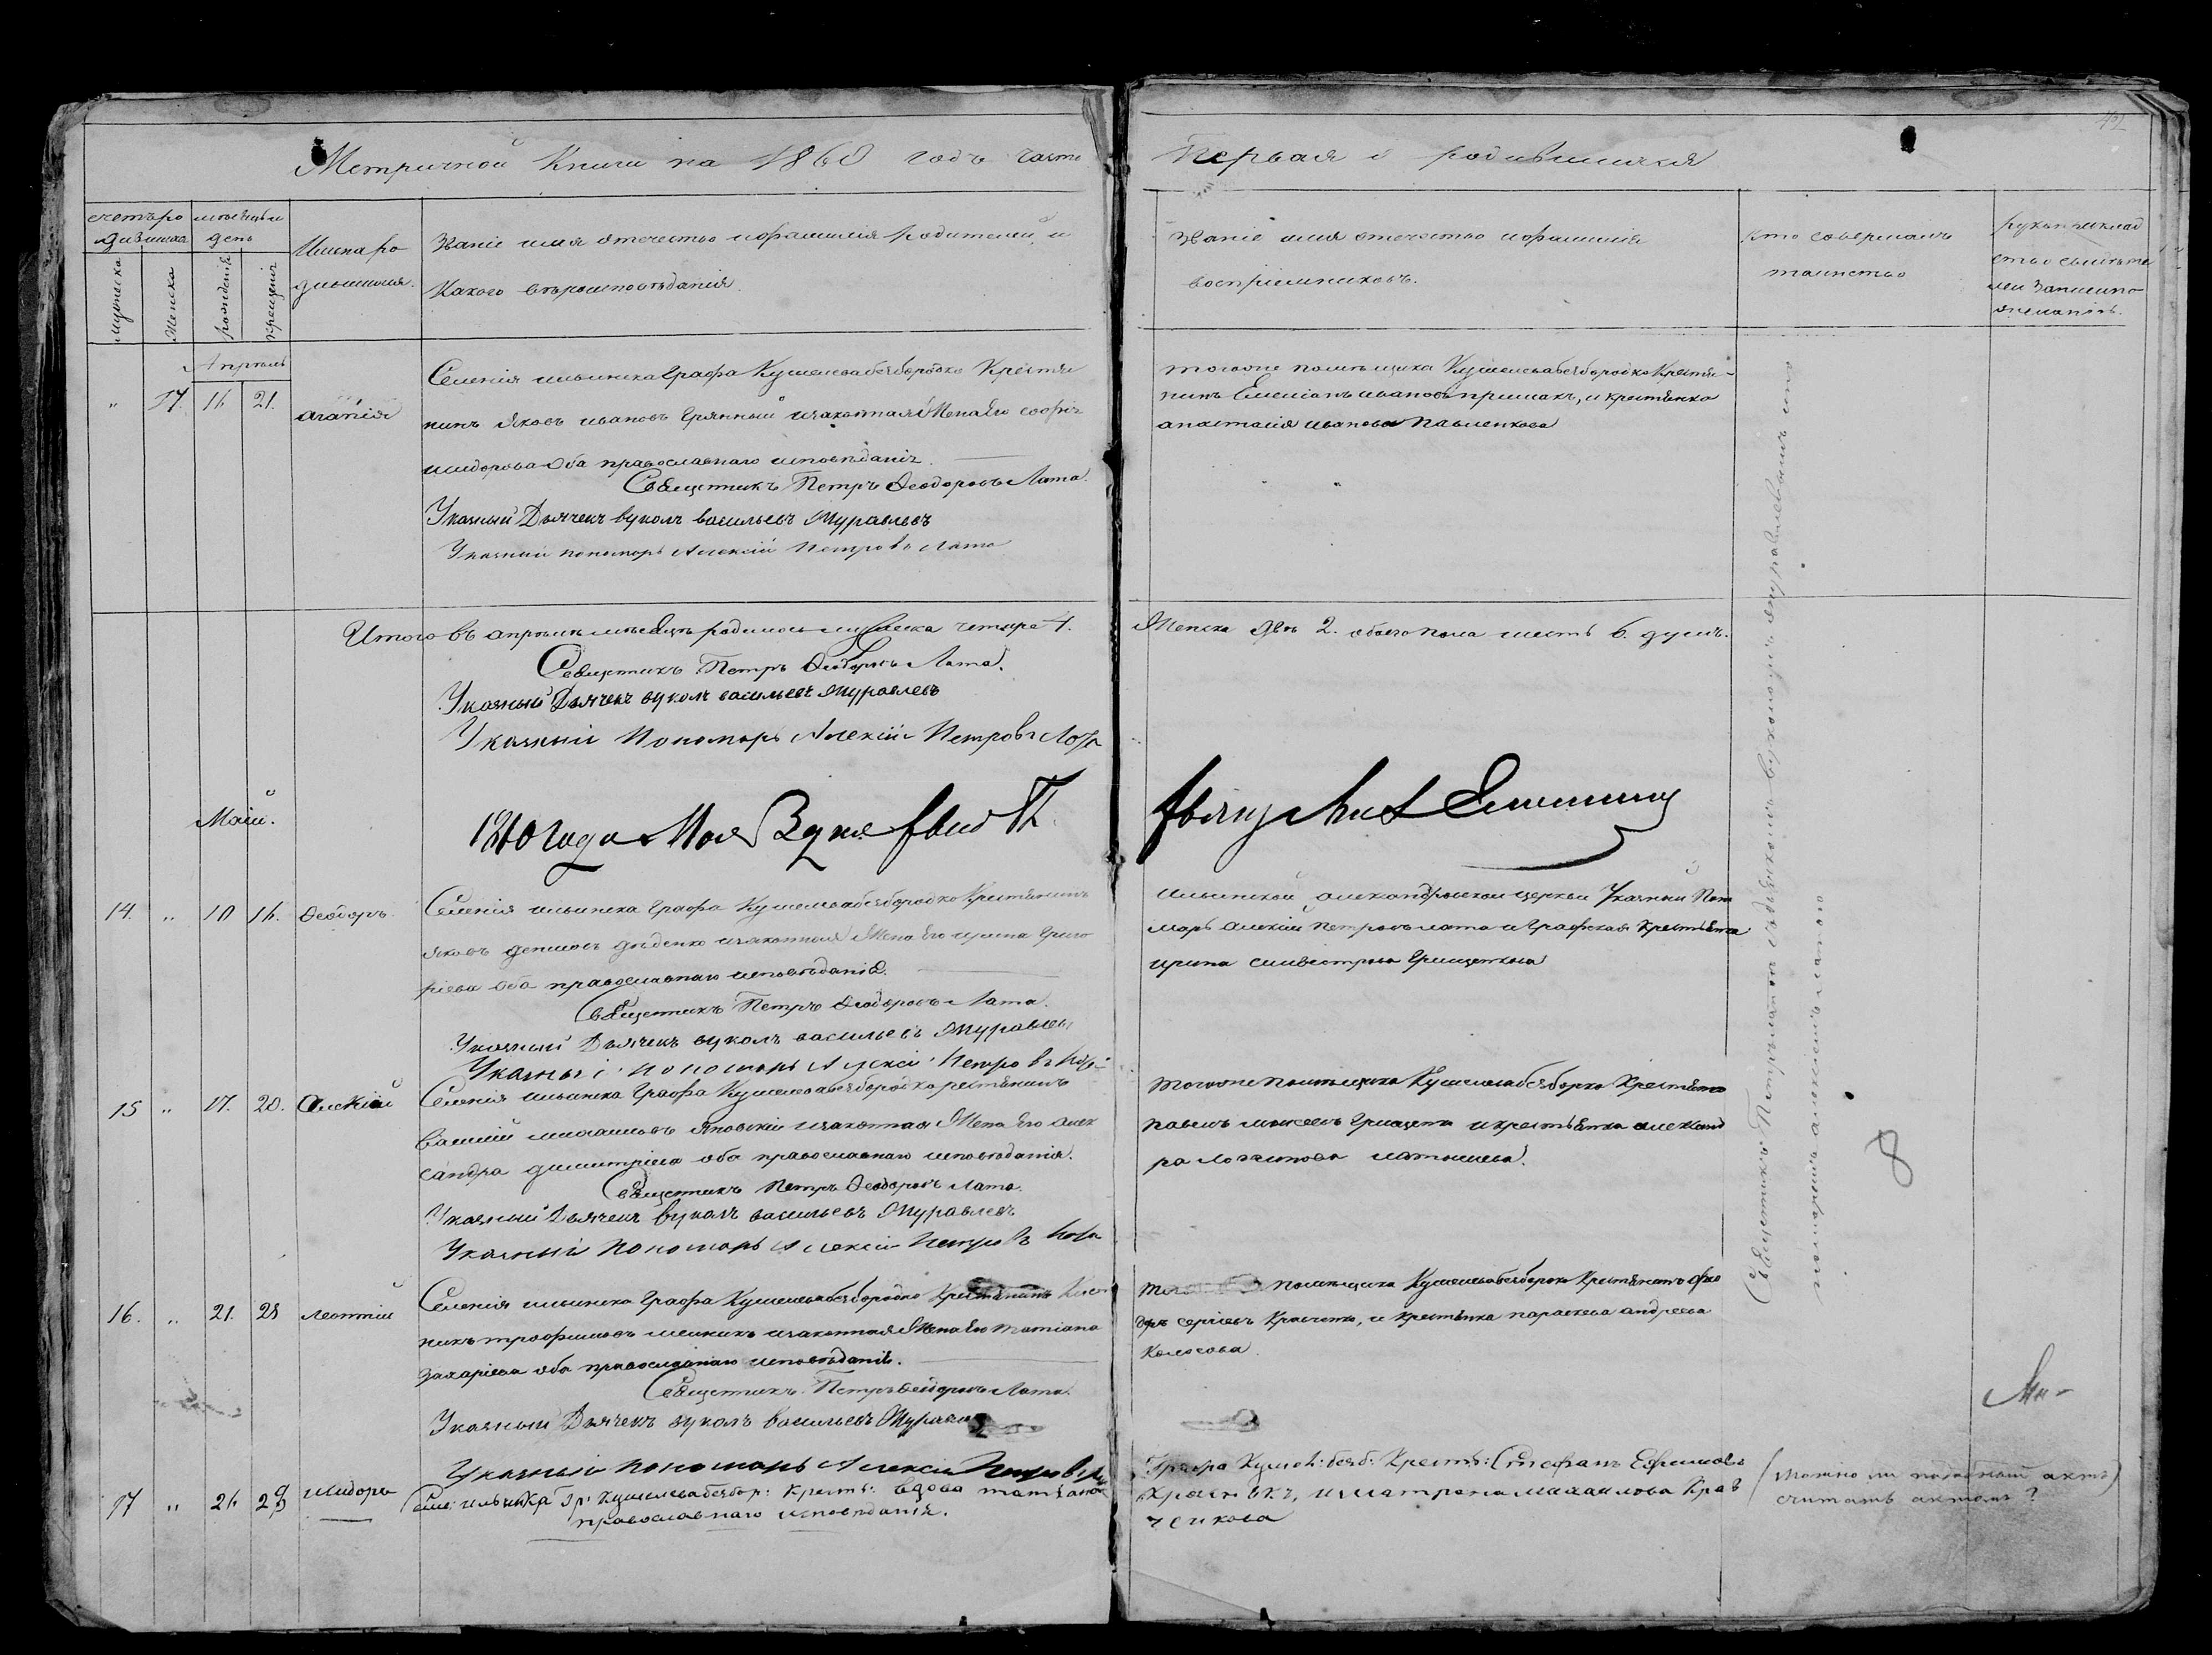 Метричной Книги на 1860 годъ часть
Первая о родившихся
счетъ ро
дившихся
мѣсяцъ и
день
мужеска
Женска
рожденія
крещенія
Имена ро
дившихся.
Званіе имя отечество и фамилія Родителей, и
Какого вѣроисповѣданія.
Званіе имя отечество и фамилія
воспріемниковъ.
Кто совершалъ
таинство
Рукоприклад
ство свидѣте
лей записи по
желанію.
Апрѣль
" 17. 16 21.
Агапія
Селенія ильинска Графа Кушелевабезбородко Крестья
нинъ Яковъ ивановъ Грянный изаконная Жена Его софія
исидорова оба православнаго исповѣданія.
Священникъ Петръ Ѳеодоровъ Лата.
Указный Дьячекъ вуколъ васильевъ Журавлевъ
Указный пономарь Алексій Петровъ Лата
тогоже помѣщика Кушелевабезбородко Крестья-
нинъ Емеліанъ ивановъ примакъ, и крестьянка
анастасія иванова Павленкова
Итого въ апрѣлѣ мѣсяцѣ родилось мужеска четыре 4.
Женска двѣ 2. обоего пола шесть 6. душъ.
Священникъ Петръ Ѳеодоровъ Лата.
Указный Дьячекъ вуколъ васильевъ Журавлевъ
Указный Пономарь Алексій Петровъ Лата
Маій.
1860 года Мая 3 дня
14. " 10 16. Ѳеодоръ
Селенія ильинска Графа Кушелевабезбородко Крестьянинъ
яковъ денисовъ дѣденко изаконная Жена Его ирина Григо
ріева оба православнаго исповѣданія.
Священникъ Петръ Ѳеодоровъ Лата.
Указный Дьячекъ вуколъ васильевъ Журавлевъ
Указный Пономарь Алексій Петровъ Лата
ильинской александровской церкви Указный Поно
марь алексій Петровъ лата и Графская Крестьянка
ирина силвестрова Грищенкова
15 " 17. 20. Алексій
Селенія ильинска Графа Кушелевабезбородко крестьянинъ
Василій михаиловъ Яновскій изаконная Жена Его алек
сандра димитріева оба православнаго исповѣданія.
Священникъ Петръ Ѳеодоровъ Лата.
Указный Дьячекъ вуколъ васильевъ Журавлевъ
Указный Пономарь Алексій Петровъ Лата
тогоже помѣщика Кушелевабезборко Крестьянинъ
павелъ моисеевъ Грищенко и крестьянка александ
ра логгинова латышева.
16. " 21. 28 леонтій
Селенія ильинска Графа Кушелевабезбородко Крестьянинъ
никъ трофимовъ мешникъ изаконная Жена Его татіана
захаріева оба православнаго исповѣданія.
Священникъ Петръ Ѳеодоровъ Лата.
Указный Дьячекъ вуколъ васильевъ Журавлевъ
Указный пономарь Алексій Петровъ
помѣщика Кушелевабезбородко Крестьянинъ Ѳео
доръ сергіевъ Кравченко, и крестьянка параскева андреева
Колосова
17 " 26 29 исидоръ
Сел: ильинка Гр: Кушелевабезбор: Крестъ: вдова татіана
православнаго исповѣданія.
Графа Кушел: безб: Крестъ: Стефанъ Ефимовъ
и матрона михаилова Крав
ченкова
(Можно ли подобный актъ)
считать актомъ?
Священникъ Петръ латою здьячкомъ вуколомъ журавлевымъ ипо
номаремъ алексіемъ латою
8